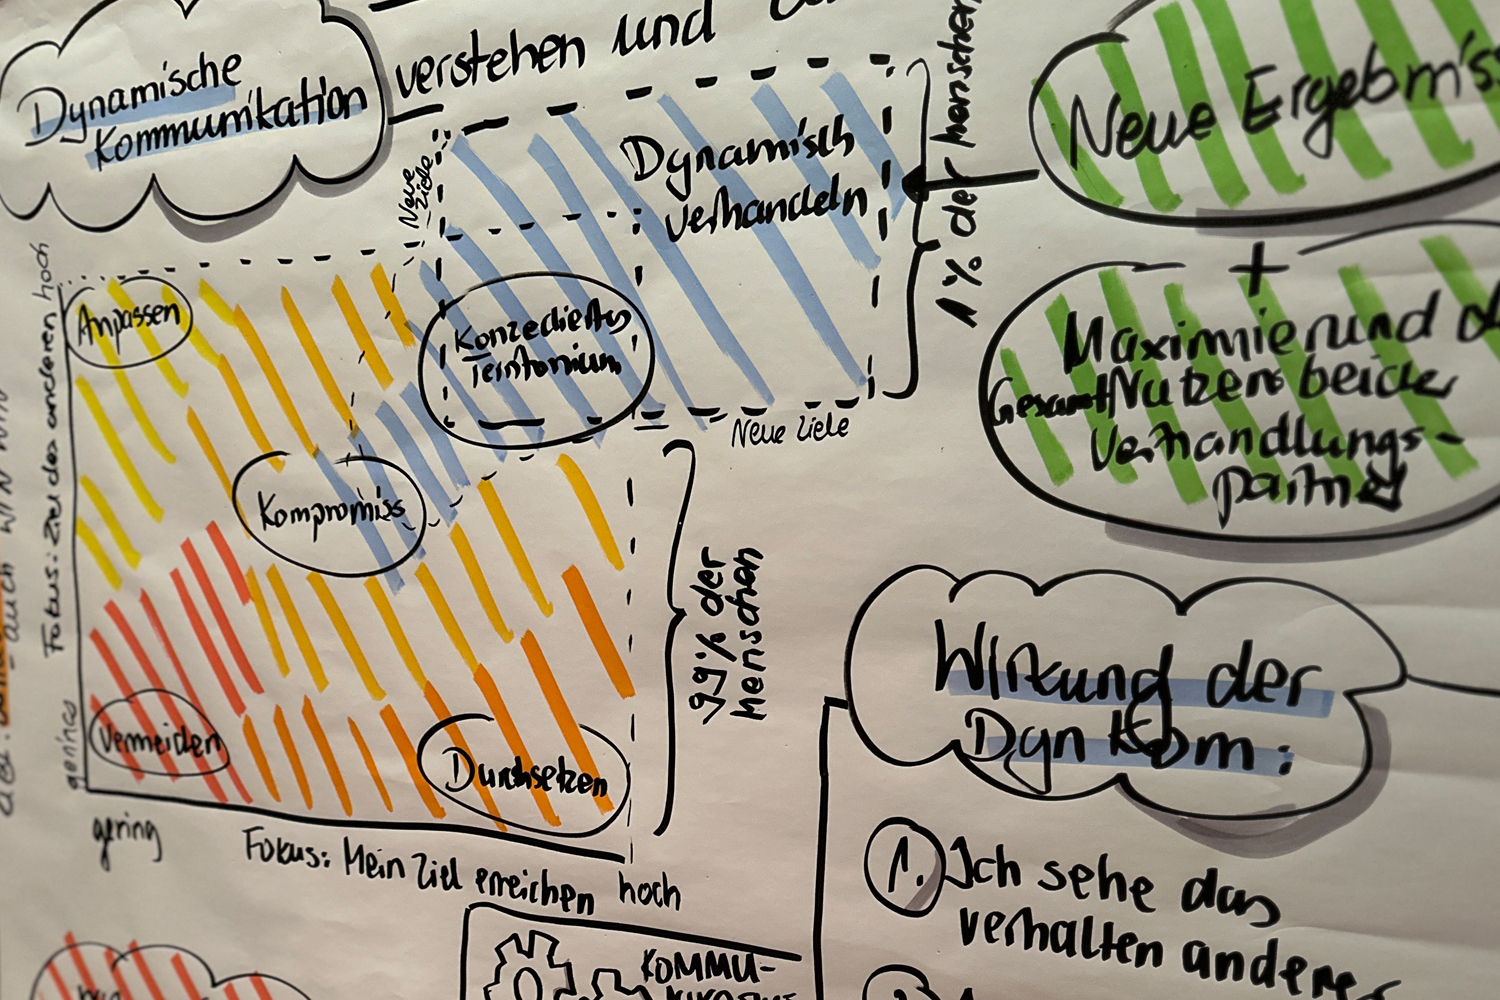 Dynamische
Kommunikation
verstehen und
Neue
Ziele
Dynamisch
verhandeln
1% der Menschen
Neue Ergebniss
+
Maximierung d
Gesamt Nutzens beider
Verhandlungs-
partner
Anpassen
Konzediertes
Territorium
Kompromiss
Neue Ziele
99% der
Menschen
Vermeiden
Durchsetzen
Fokus: Ziel des anderen hoch
gering
gering
Fokus: Mein Ziel erreichen hoch
Wirkung der
Dyn Kom:
1. Ich sehe das
verhalten anderer
KOMMU-